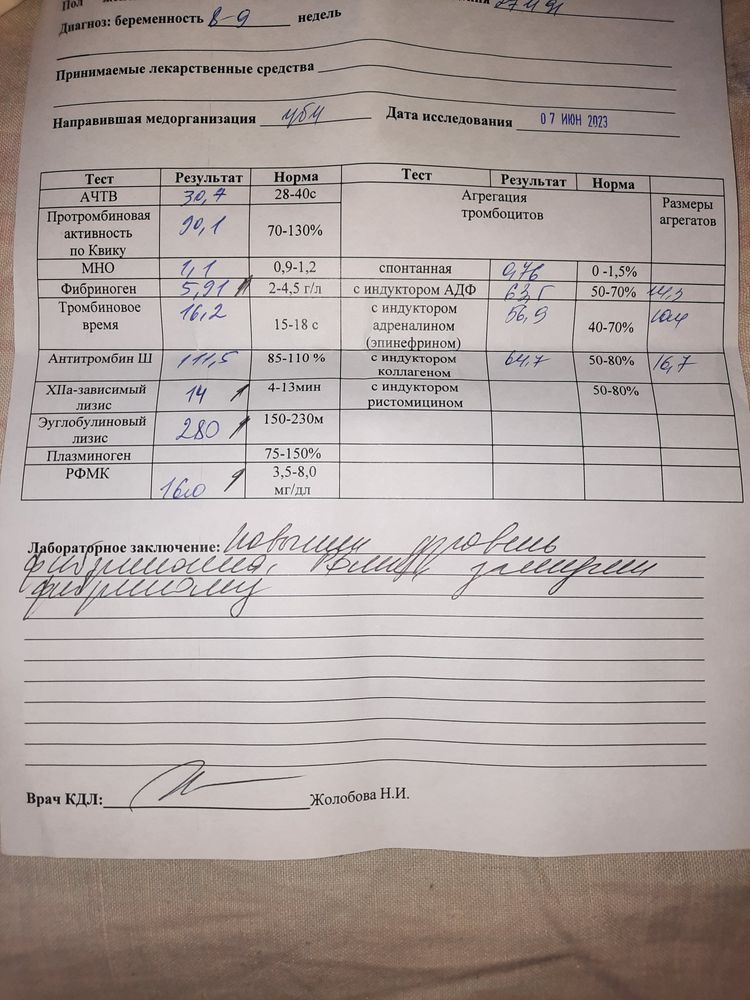 Пол
Диагноз: беременность 8-9 недель
Принимаемые лекарственные средства
Направившая медорганизация Дата исследования 07 ИЮН 2023
Тест Результат Норма Тест Результат Норма Размеры агрегатов
АЧТВ 30,7 28-40с Агрегация тромбоцитов
Протромбиновая активность по Квику 90,1 70-130%
МНО 1,1 0,9-1,2 спонтанная 0,76 0 -1,5%
Фибриноген 5,91 2-4,5 г/л с индуктором АДФ 50-70%
Тромбиновое время 16,2 15-18 с с индуктором адреналином (эпинефрином) 56,9 40-70%
Антитромбин Ш 111,5 85-110 % с индуктором коллагеном 64,7 50-80% 16,7
XIIа-зависимый лизис 14 4-13мин с индуктором ристомицином 50-80%
Эуглобулиновый лизис 280 150-230м
Плазминоген 75-150%
РФМК 16.0 3,5-8,0 мг/дл
Лабораторное заключение: Повышен уровень
фибриногена, РФМК, замедлен
фибринолиз
Врач КДЛ: Жолобова Н.И.